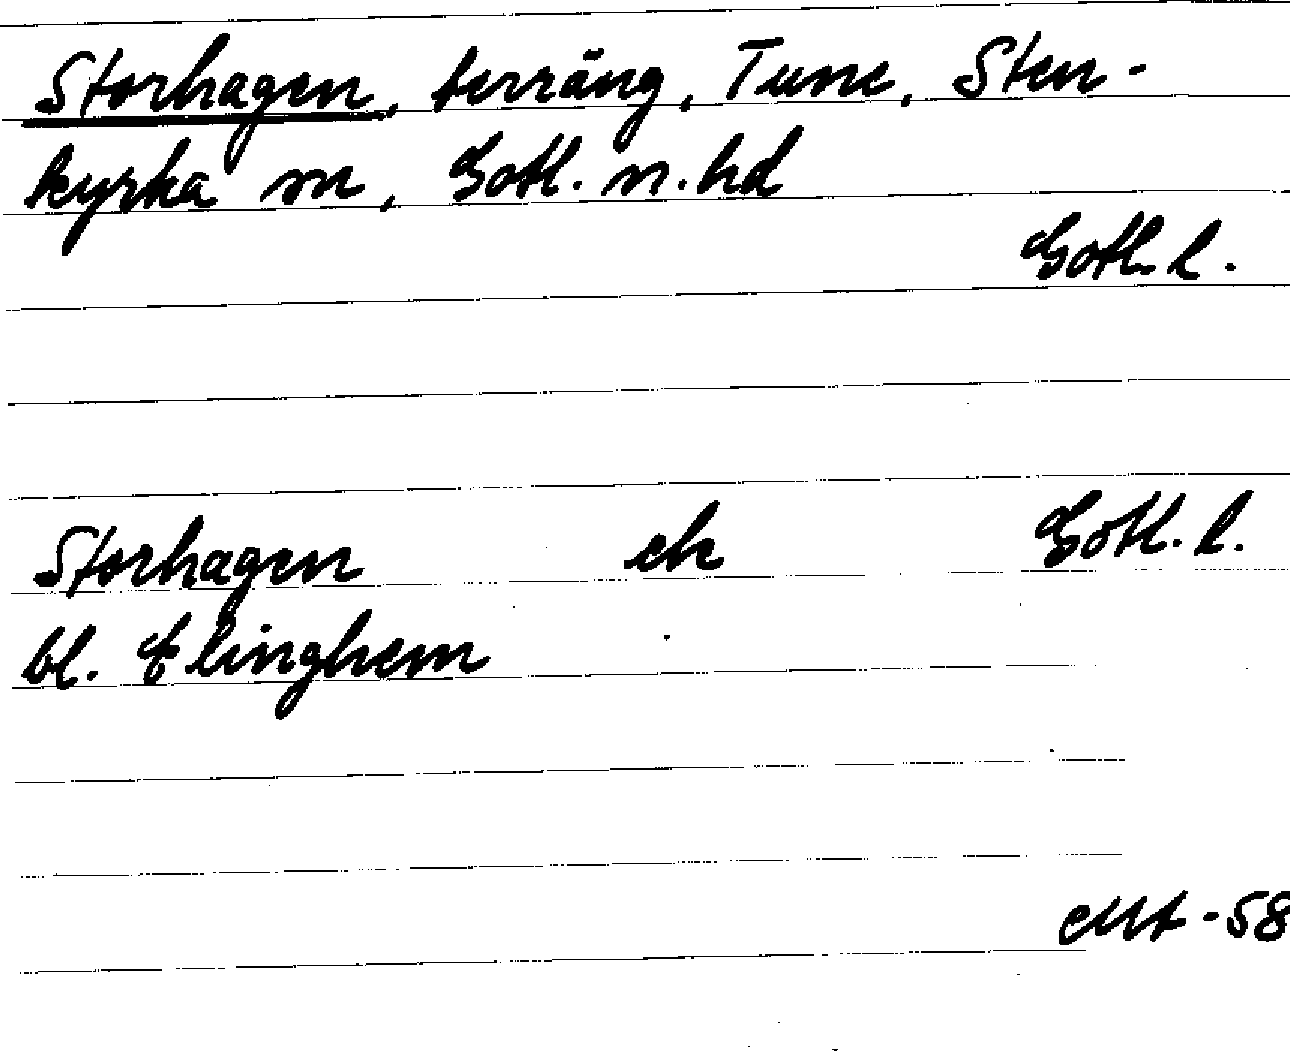 Storhagen, terräng, Tune, Sten-
kyrka sn, Gotl. n. hd
Gotl. l.
Storhagen ek Gotl. l.
bl. Elinghem
-58